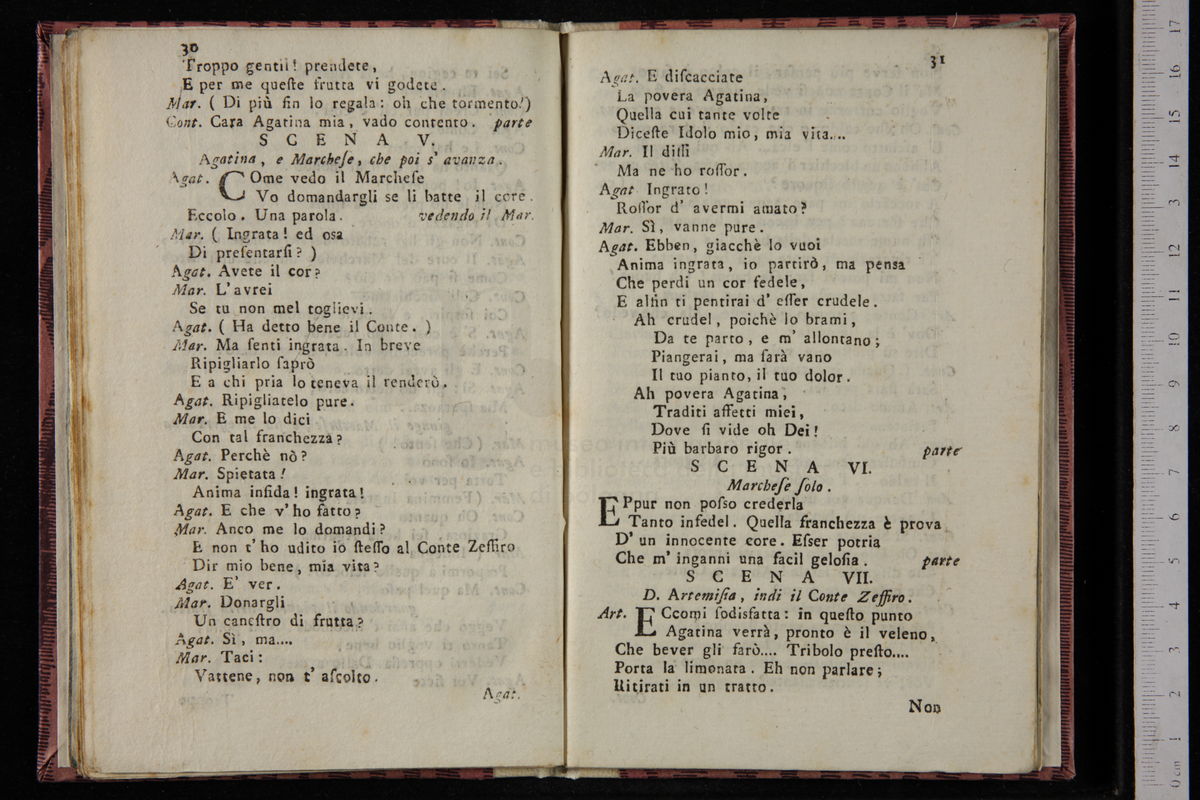 30
Troppo gentil! prendete,
E per me queſte frutta vi godete.
Mar. ( Di più ſin lo regala: oh che tormento!)
Cont. Cara Agatina mia, vado contento. parte
SCENA V.
Agatina, e Marcheſe, che poi s' avanza.
Agat. COme vedo il Marcheſe
Vo domandargli se li batte il core.
Eccolo. Una parola. vedendo il Mar.
Mar. ( Ingrata! ed osa
Di preſentarſi? )
Agat. Avete il cor?
Mar. L'avrei
Se tu non mel toglievi.
Agat. ( Ha detto bene il Conte. )
Mar. Ma ſenti ingrata. In breve
Ripigliarlo ſaprò
E a chi pria lo teneva il renderò.
Agat. Ripigliatelo pure.
Mar. E me lo dici
Con tal franchezza?
Agat. Perchè nò?
Mar. Spietata!
Anima infida! ingrata!
Agat. E che v'ho fatto?
Mar. Anco me lo domandi?
E non t'ho udito io ſteſſo al Conte Zeffiro
Dir mio bene, mia vita?
Agat. E' ver.
Mar. Donargli
Un caneſtro di frutta?
Agat. Sì, ma....
Mar. Taci:
Vattene, non t' aſcolto.
Agat.
31
Agat. E diſcacciate
La povera Agatina,
Quella cui tante volte
Diceſte Idolo mio, mia vita....
Mar. Il diſſi
Ma ne ho roſſor.
Agat Ingrato!
Roſſor d' avermi amato?
Mar. Sì, vanne pure.
Agat. Ebben, giacchè lo vuoi
Anima ingrata, io partirò, ma pensa
Che perdi un cor fedele,
E alfin ti pentirai d' eſſer crudele.
Ah crudel, poichè lo brami,
Da te parto, e m' allontano;
Piangerai, ma ſarà vano
Il tuo pianto, il tuo dolor.
Ah povera Agatina,
Traditi affetti miei,
Dove ſi vide oh Dei!
Più barbaro rigor. parte
SCENA VI.
Marcheſe ſolo.
EPpur non poſso crederla
Tanto infedel. Quella franchezza è prova
D' un innocente core. Eſser potria
Che m' inganni una facil geloſia. parte
SCENA VII.
D. Artemiſia, indi il Conte Zeffiro.
Art. ECcomi ſodisfatta: in queſto punto
Agatina verrà, pronto è il veleno,
Che bever gli farò.... Tribolo preſto....
Porta la limonata. Eh non parlare;
Ritirati in un tratto.
Non